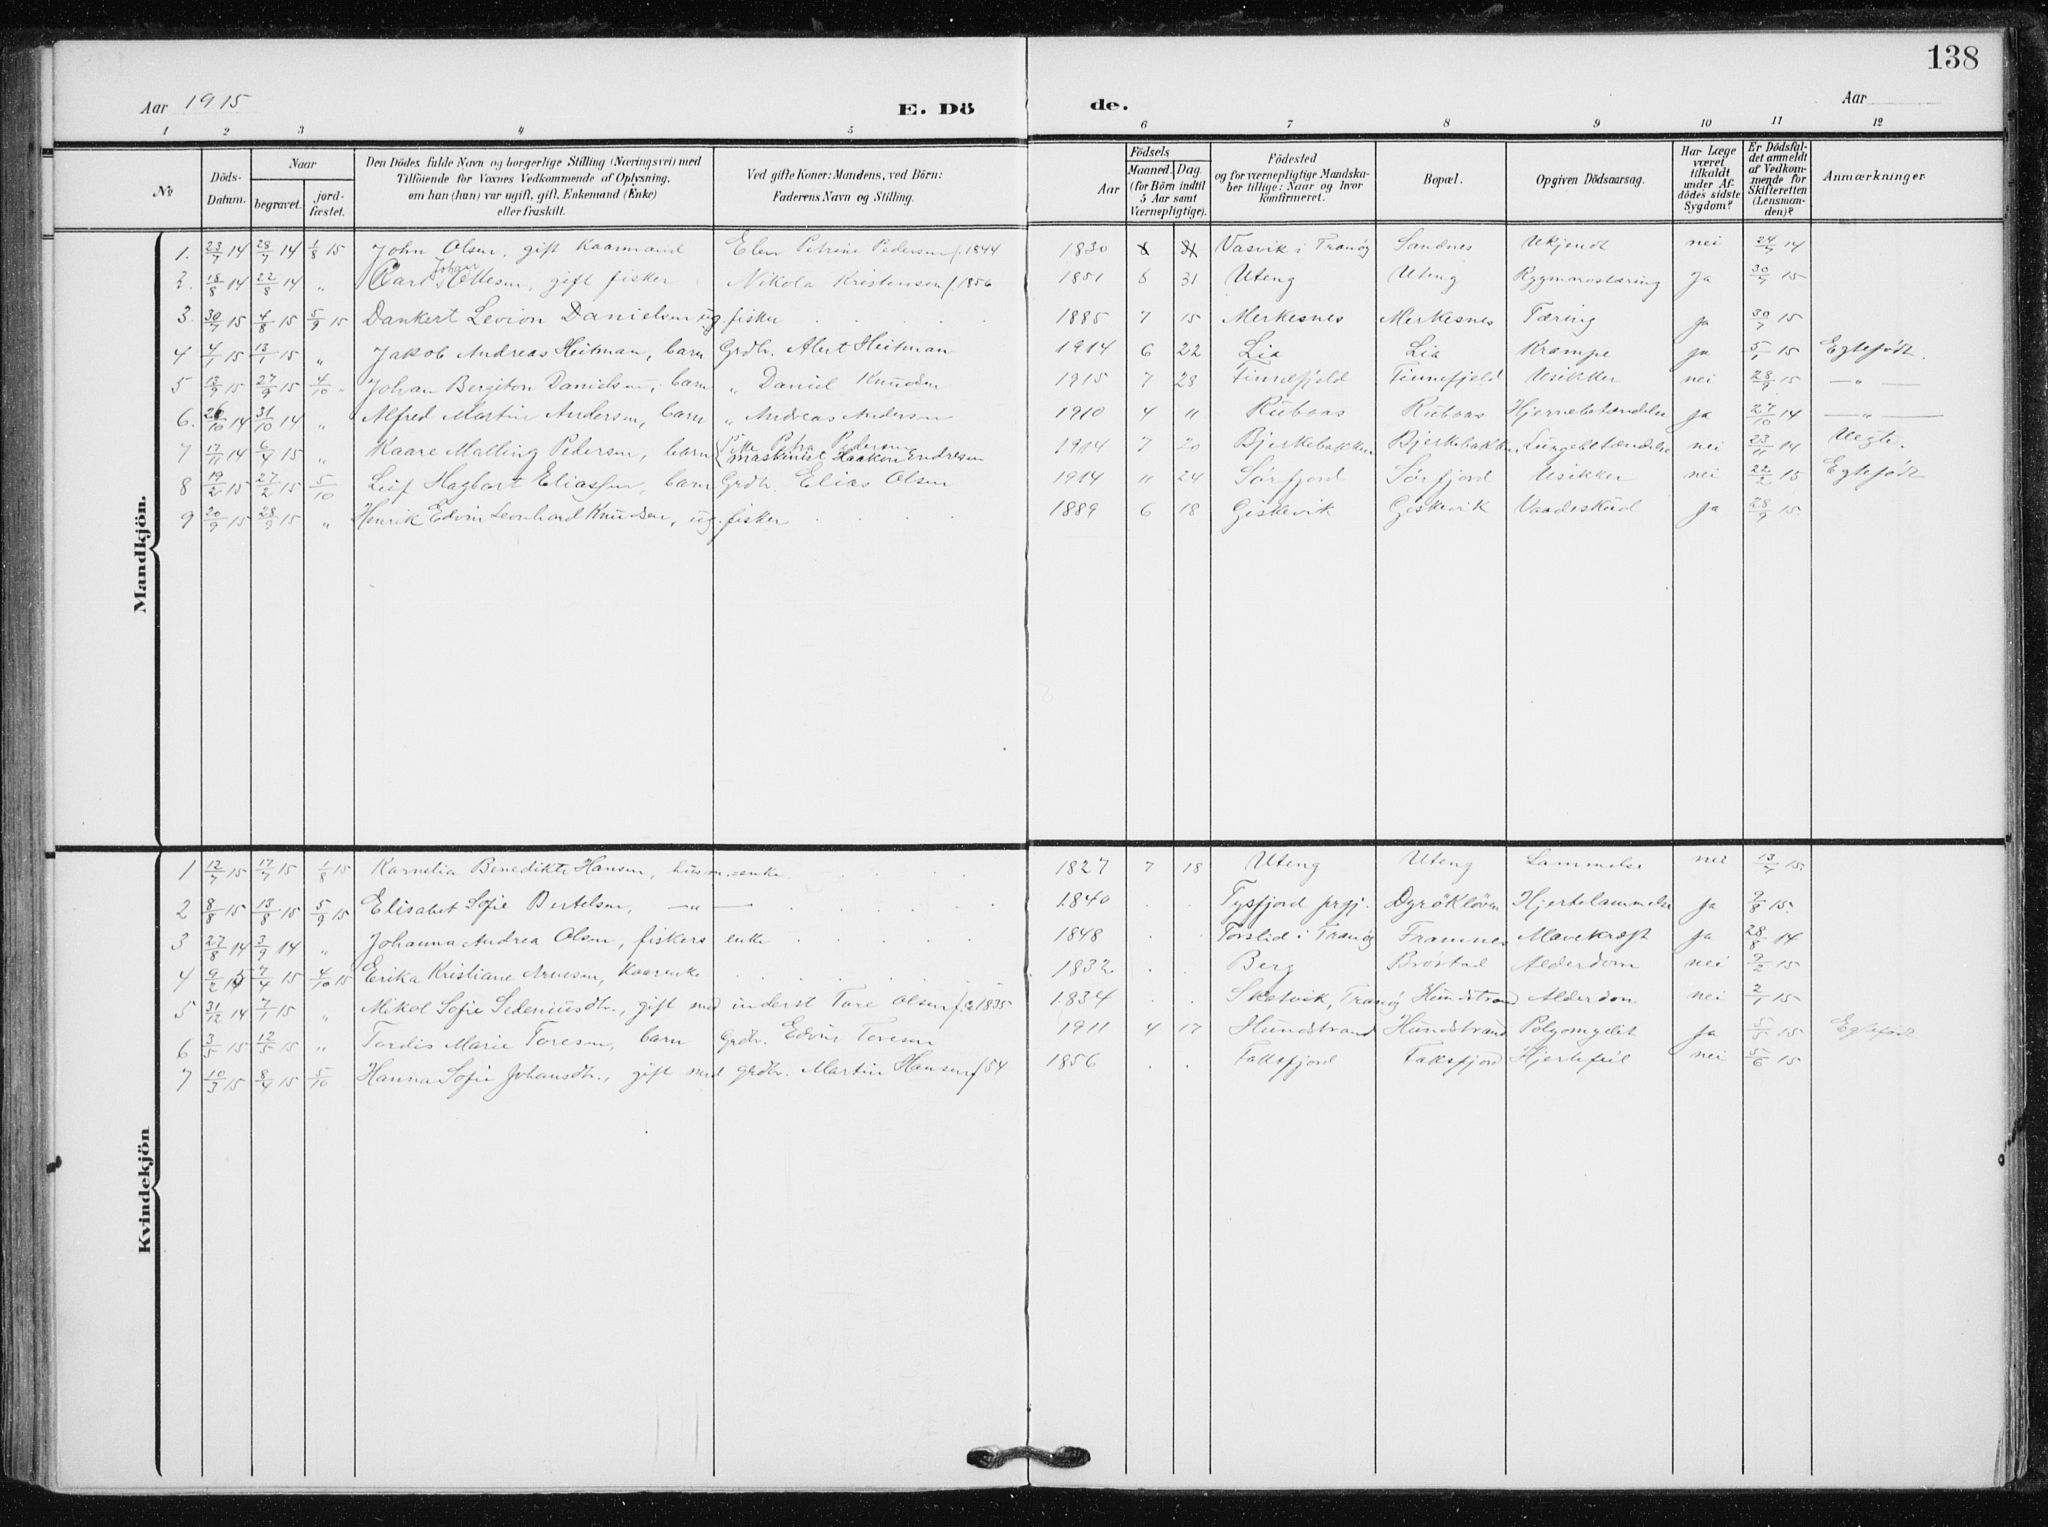 138
Aar 1915 E. Dö de. Aar
1 2 3 4 5 6 7 8 9 10 11 12
№ Döds-Datum. Naar begravet. jord-fæstet. Den Dödes fulde Navn og borgerlige Stilling (Næringsvei) med Tilföiende for Voxnes Vedkommende af Oplysning, om han (hun) var ugift, gift, Enkemand (Enke) eller fraskilt. Ved gifte Koner: Mandens, ved Börn: Faderens Navn og Stilling. Födsels Aar Maaned. Dag. (for Börn indtil 5 Aar samt Værnepligtige). Födested og for værnepligtige Mandskaber tillige: Naar og hvor konfirmeret. Bopæl. Opgiven Dödsaarsag. Har Læge været tilkaldt under Afdödes sidste Sygdom? Er Dödsfaldet anmeldt af Vedkommende for Skifteretten (Lensmanden)? Anmærkninger.
Mandkjön.
1. 23/7 14 28/7 14 1/8 15 John Olsen, gift Kaarmand Elen Petrine Pedersen f. 1844 1830 Vasvik i Tranøy Sandnes Ukjendt nei 24/7 14
2. 18/8 14 22/8 14 " Carl Johan Ottesen, gift fisker Nikola Kristensen f. 1856 1851 8 31 Uteng Uteng Rygmarvstæring Ja 30/7 15
3. 30/7 15 4/8 15 5/9 15 Dankert Levion Danielsen ug. fisker 1885 7 15 Merkesnes Merkesnes Tæring ja 30/7 15
4 4/1 15 13/1 15 " Jakob Andreas Heitman, barn Grdbr. Alert Heitman 1914 6 22 Lia Lia Krampe ja 5/1 15 Egtefødt.
5 13/9 15 27/9 15 4/10 " Johan Bergiton Danielsen, barn " Daniel Knudsen 1915 7 28 Finnefjeld Finnefjeld Usikker nei 28/9 15 — " —
6. 10 14 31/10 14 " Alfred Martin Andersen, barn " Andreas Andersen 1910 4 11 Rubbas Rubbas Hjernebetændelse ja 27/10 14 — " —
7 17/11 14 6/4 15 " Kaare Malling Pedersen, barn Pike Petra Pedersen maskinist Haakon Endresen 1914 7 20 Bjerkebakken Bjerkebakken Lungebetændelse nei 23/11 14 Uegte.
8 19/2 15 27/2 15 5/10 Leif Hagbart Eliassen, barn Grdbr. Elias Olsen 1914 11 24 Sørfjord Sørfjord Usikker nei 22/2 15 Egtefødt
9 20/9 15 28/9 15 " Henrik Edvin Leonhard Knudsen, ug. fisker 1889 6 18 Giskevik Giskevik Vaadeskud Ja 28/9 15.
Kvindekjön
1 12/7 15 17/7 15 1/8 15 Karnelia Benedikte Hansen, husm. enke 1827 7 18 Uteng Uteng Lammelse nei 13/7 15.
2 8/8 15 13/8 15 5/9 15 Elisabet Sofie Bertelsen, — " — 1840 Tysfjord prgj. Dyröklöven Hjertelammelse Ja 9/8 15.
3 27/8 14 3/9 14 " Johanna Andrea Olsen, fiskers enke 1848 Torslid i Tranøy Framnes Mavekræft Ja 28/8 14
4 9/2 15 7/4 15 4/10 15 Erika Kristiane Arnesen, Kaarenke 1832 Berg Bröstad Alderdom nei 9/2 15
5 31/12 14 7/1 15 " Mikol Sofie Sedeniusdtr., gift med inderst Tore Olsen f. 1835 1834 Skatvik, Tranøy Hundstrand Alderdom nei 2/1 15
6 3/5 15 12/5 15 " Tordis Marie Toresen, barn Grdbr. Edvin Toresen 1911 4 17 Hundstrand Hundstrand Polyomyelit Ja 5/5 15 Egtefødt
7 10/3 15 8/4 15 5/10 Hanna Sofie Johansdtr., gift med grdbr. Martin Hansen f 54 1856 Faksfjord Faksfjord Hjertefeil nei 5/6 15